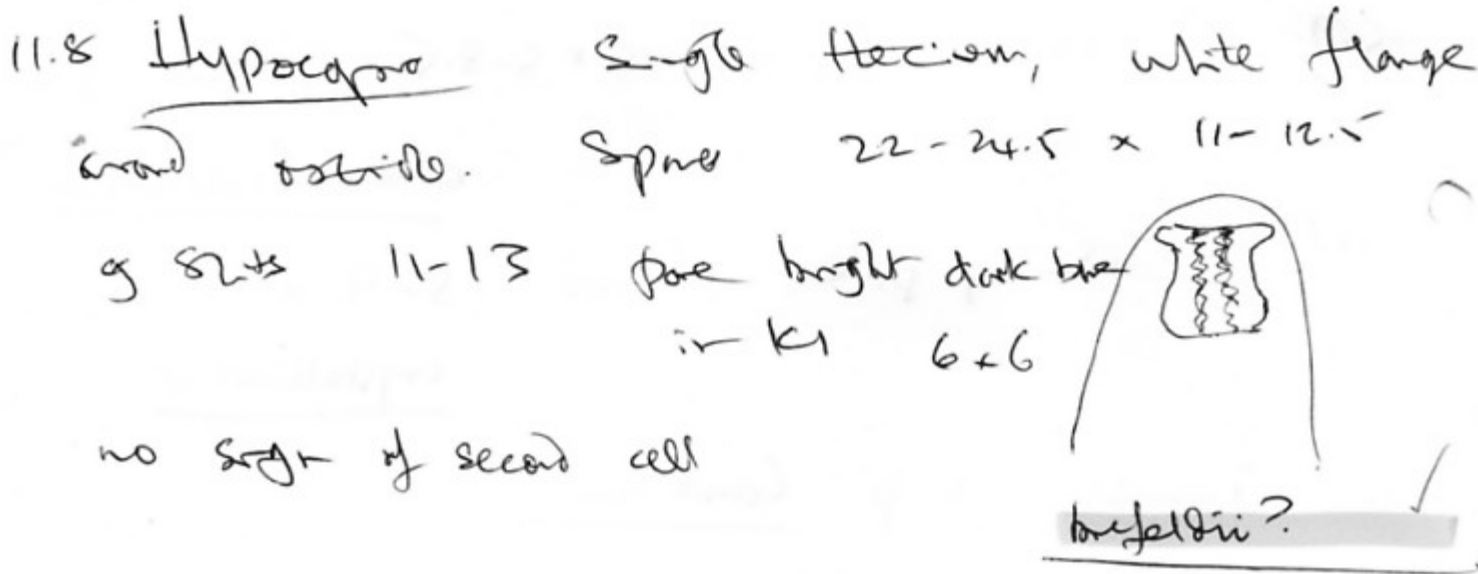 11.8 Hypocopra Single thecium, white flange
around ostiole. Spores 22-24.5 x 11-12.5
g slits 11-13 pore bright dark blue
in KI 6x6
no sign of second cell
brefeldii?